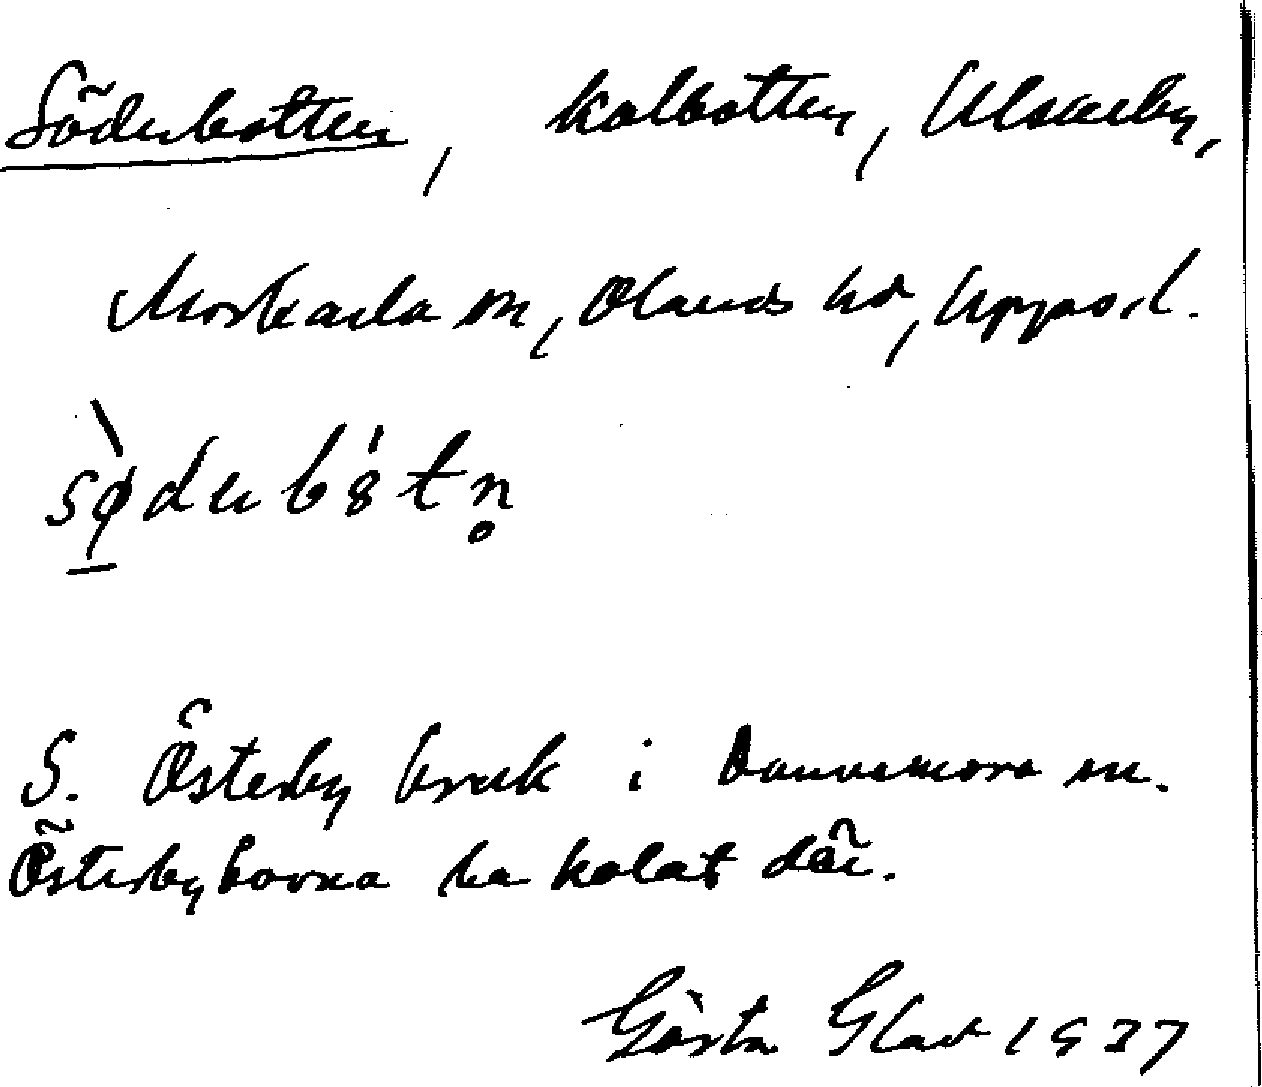 Söderbotten, kolbotten, Ulvarby,
Morkarla sn, Olands hd, Uppsa.l.
sø̀derbȯtn̥
S. Österby bruk i Dannemora sn.
Österbyborna ha kolat där.
Gösta Glad 1937